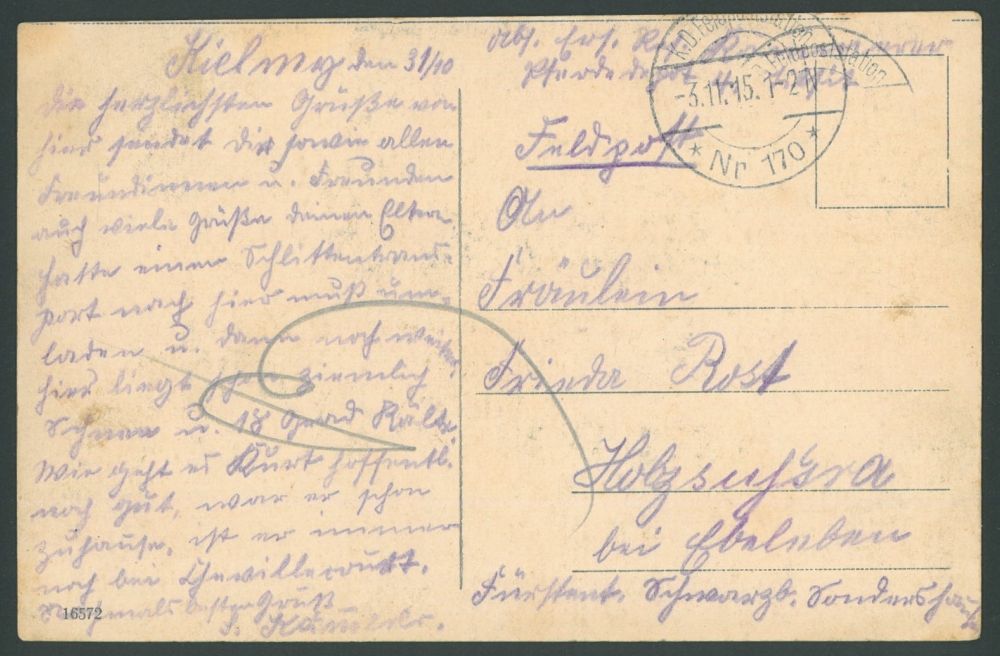 Kielmy den 31/10
die herzlichsten Grüße von
hier sendet Dir sowie allen
Freundinnen u. Freunden
auch viele Grüße deinen Eltern.
hatte einen Schlittentrans-
port nach hier muß um-
laden u. dann noch weiter.
hier liegt schon ziemlich
Schnee u. 18 Grad Kälte.
Wie geht es Kurt hoffentl.
noch gut, war er schon
zuhause, ist er immer
noch bei
Nochmals besten Gruß
16572
Abs. Ers. Res.
Pferdedepot
K.D. Feldpoststation
-3.11.15. 1-2 N
* Nr 170 *
Feldpost
An
Fräulein
Frieda Rost
Holzsußra
bei Ebeleben
Fürstent. Schwarzb. Sondershause